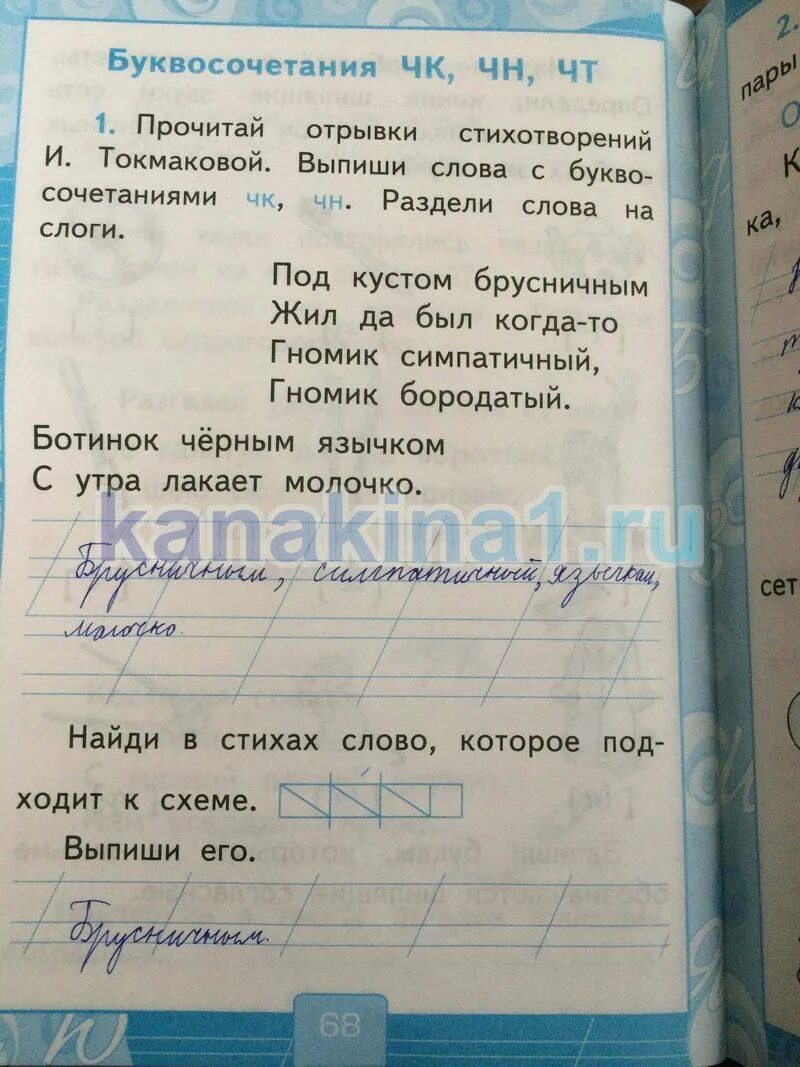 Буквосочетания ЧК, ЧН, ЧТ
1. Прочитай отрывки стихотворений
И. Токмаковой. Выпиши слова с букво-
сочетаниями чк, чн. Раздели слова на
слоги.
Под кустом брусничным
Жил да был когда-то
Гномик симпатичный,
Гномик бородатый.
Ботинок чёрным язычком
С утра лакает молочко.
kanakina1.ru
Брусничным, симпатичный, язычком,
молочко.
Найди в стихах слово, которое под-
ходит к схеме.
Выпиши его.
Брусничным.
68
2.
пары
ка,
сет